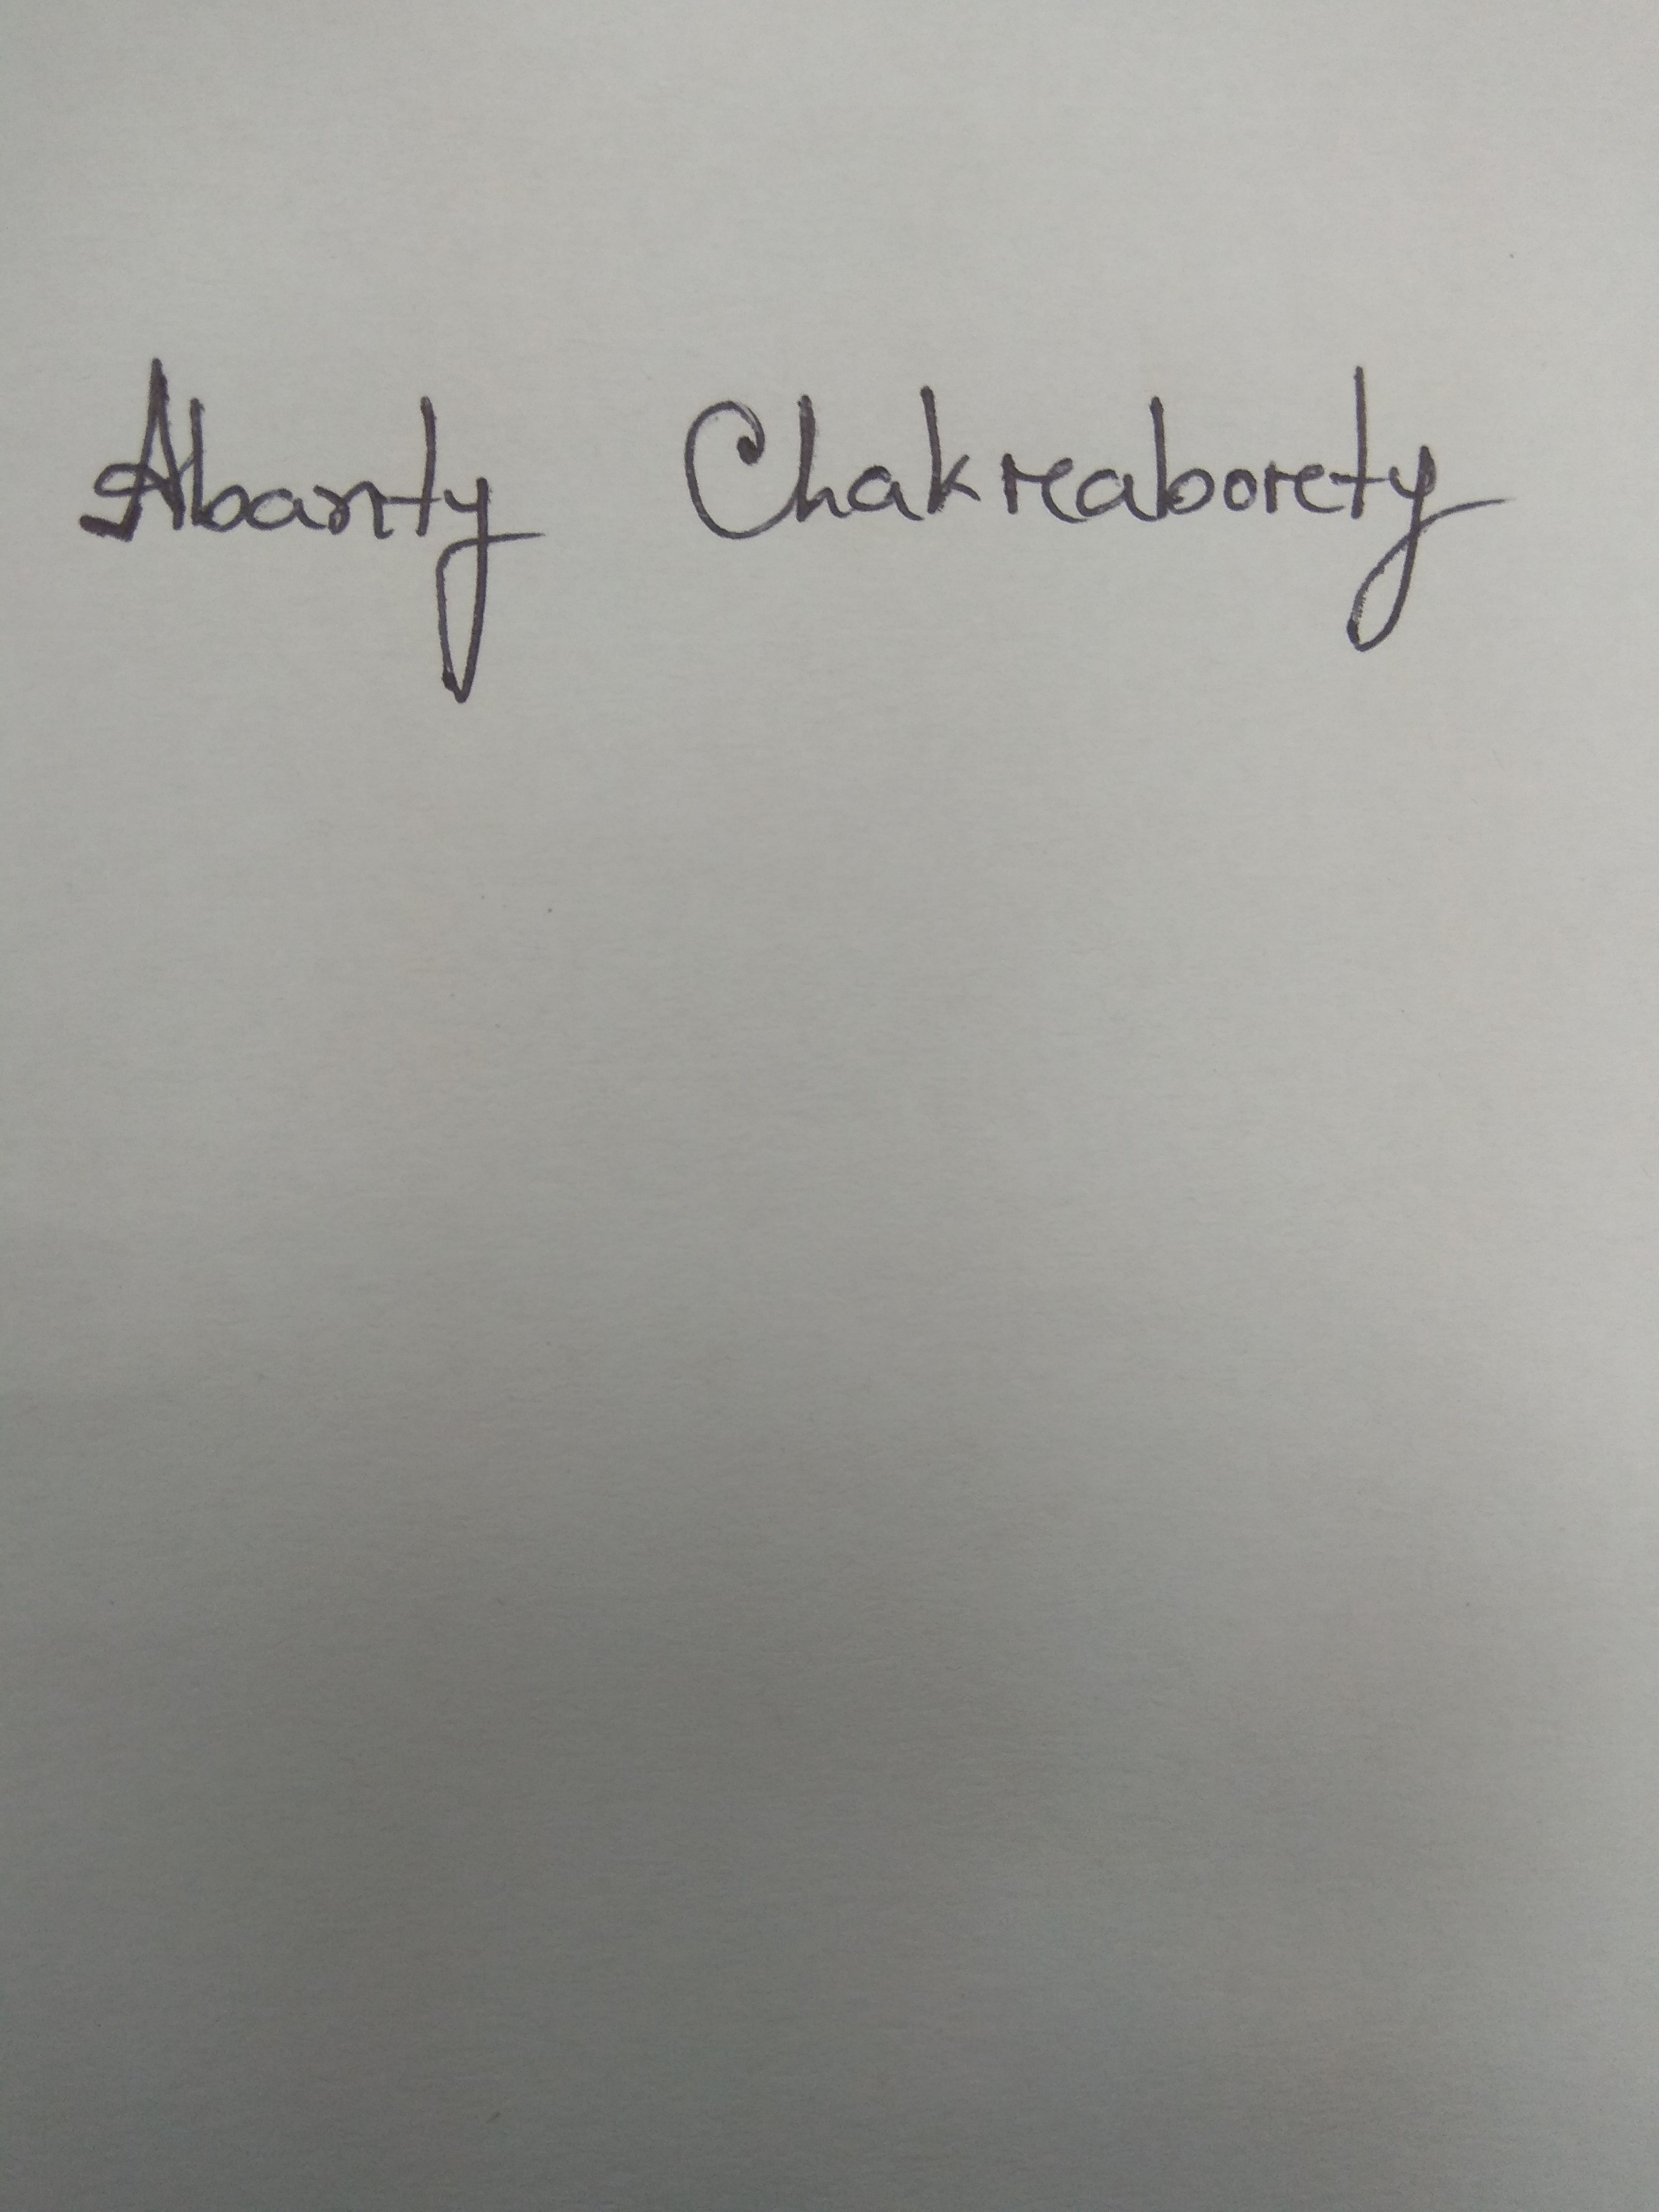 Abanty Chakraborty